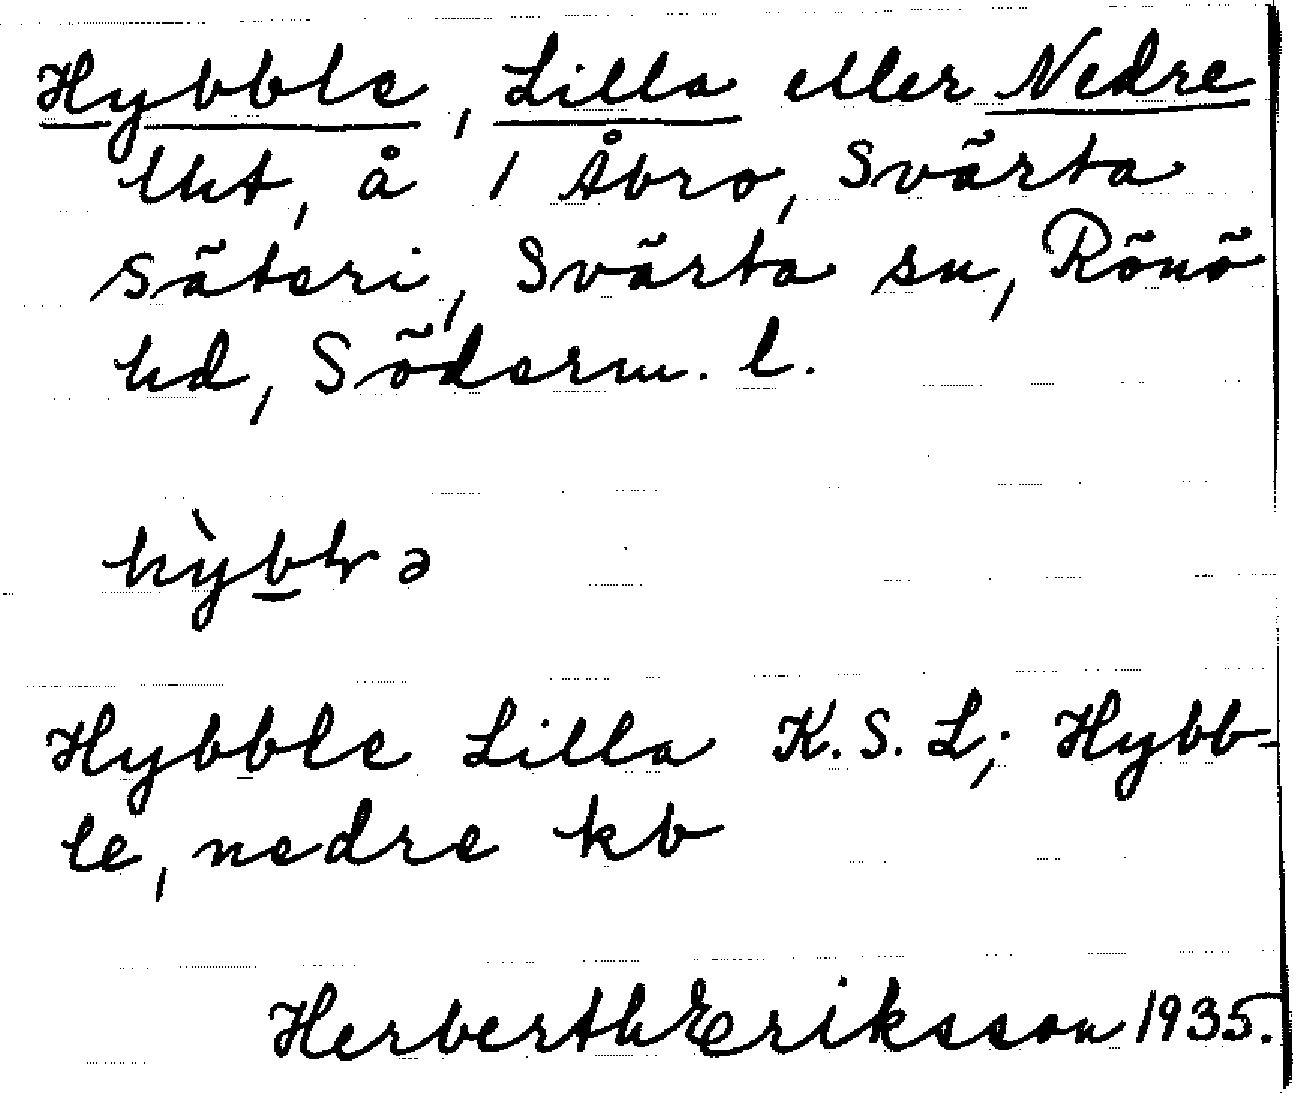 Hybble, Lilla eller Nedre
lht, å 1 Åbro, Svärta
säteri, Svärta sn, Rönö
hd, Söderm. l.
Hybble Lilla K.S.L.; Hybb-
le, nedre kb
Herberth Eriksson 1935.